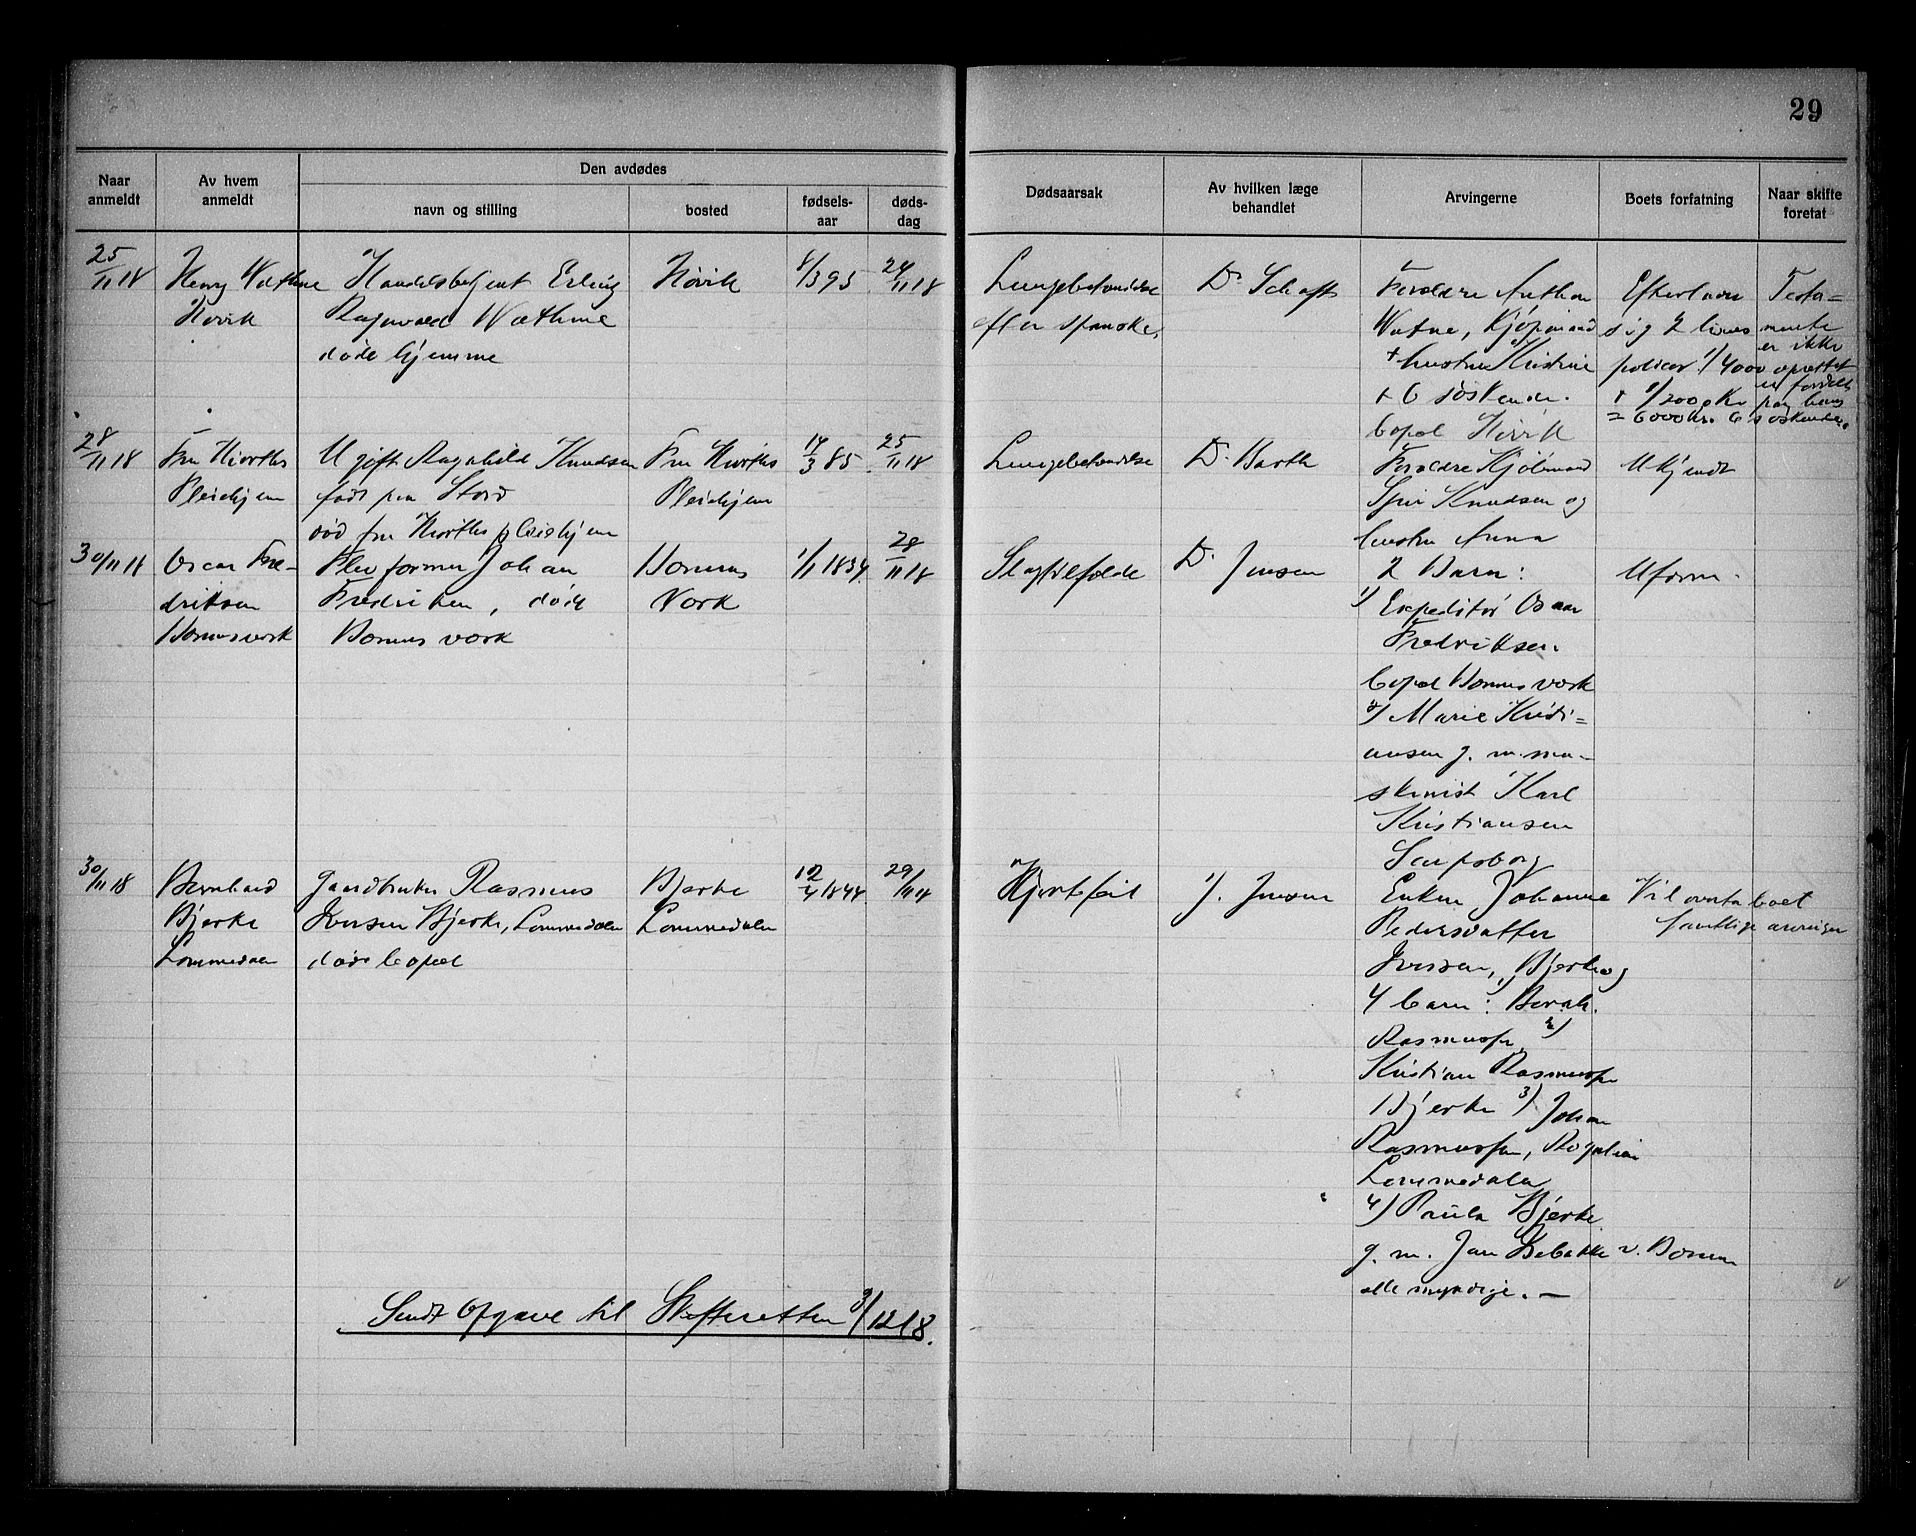 29
Naar anmeldt
Av hvem anmeldt
Den avdødes
navn og stilling
bosted
fødsels-aar
døds-dag
Dødsaarsak
Av hvilken læge behandlet
Arvingerne
Boets forfatning
Naar skifte foretat
25/11 18
Henry Wathne
Høvik
Handelsbetjent Erling
Ragnvald Wathne
døde hjemme
Høvik
8/3 95
24/11 18
Lungebetændelse
efter spanske,
Dr. Schaft
Forældre Anthon
Watne, Kjøpmand
+ hustru Kristine
+ 6 søskende.
bopæl Høvik
Efterlader
sig 2 livs
policer 1/ 4000
+ 2/ 2000 Kr
= 6000 kr.
Testa=
mente
er ikke
oprettet
paa hans
6 søskende.
28/11 18
Fru Hiorths
Pleiehjem
Ugift Ragnhild Knudsen
født paa Stord
død fru Hiorths pleiehjem
Fru Hiorths
Pleiehjem
14/3 85
25/11 18
Lungebetændelse
Dr. Barth
Forældre Kjøbmand
Knudsen og
hustru Anna
Ukjendt
30/11 18
Oscar Fre-
driksen
Bærumsverk
Johan
Fredriksen, døde
Bærums verk
Bærums
Verk
1/1 1834
28/11 18
Slagtilfælde
Dr. Jensen
2 Barn:
1) Expeditør Oscar
Fredriksen.
bopæl Bærums verk
2) Marie Kristi=
ansen g. m. ma-
skinist Karl
Kristiansen
Sarpsborg
Uform.
30/11 18
Bernhard
Bjerke
Lommedalen
Gaardbruker Rasmus
Iversen Bjerke, Lommedalen
døde bopæl
Bjerke
Lommedalen
12/4 1844
29/11 18
Hjertefeil
Jensen
Enken Johanne
Pedersdatter
Iversen, Bjerke og
4 barn: 1) Bernh.
Rasmussen 2)
Kristian Rasmussen
Bjerke 3) Johan
Rasmussen,
Lommedalen
4) Paula Bjerke
g. m. Jan v. Bærum
alle myndige. —
Vil overta boet
samtlige arvinger
Sendt Opgave til Skifteretten 3/12 18.